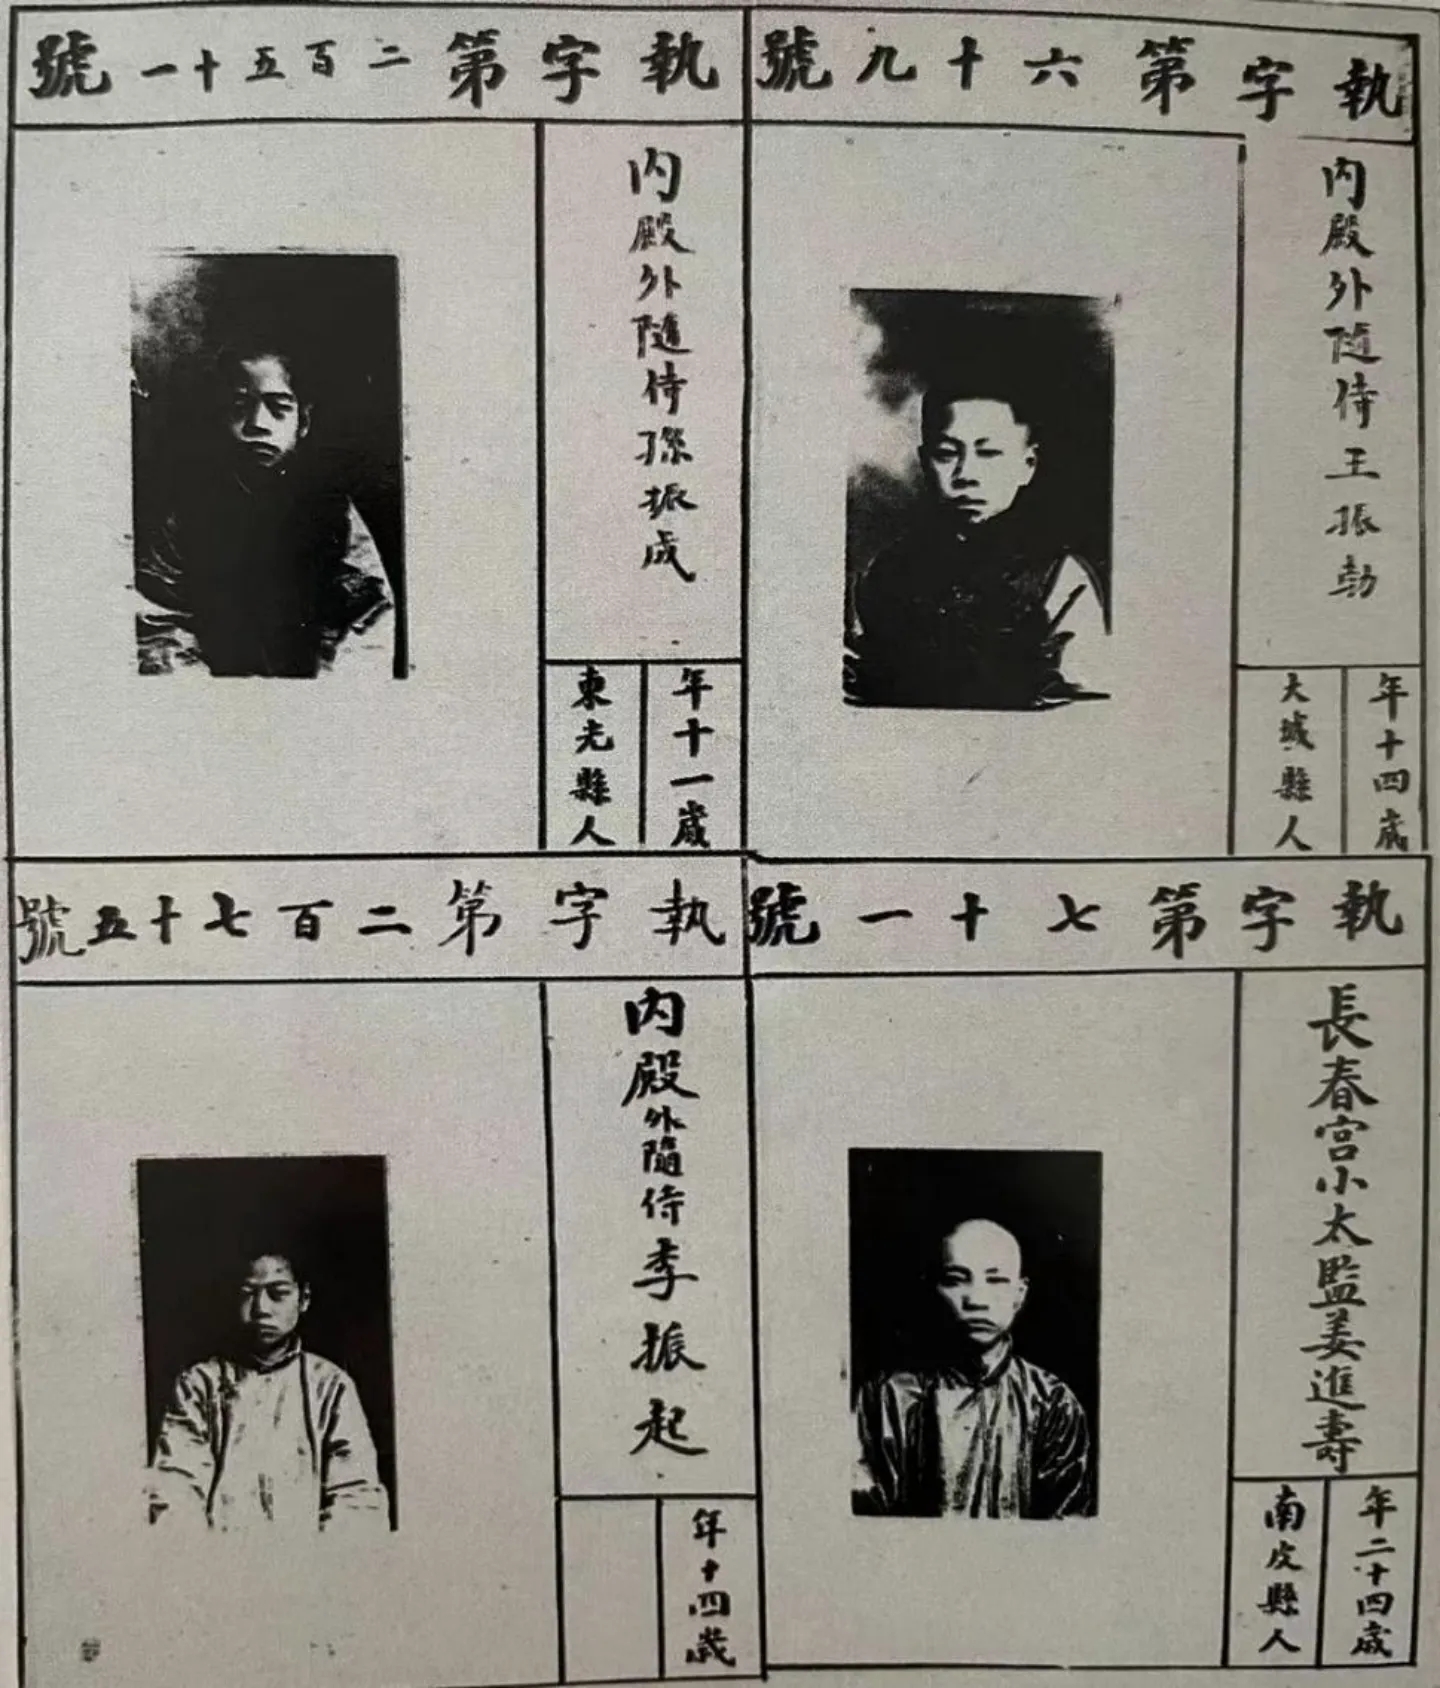 執字第六十九號
內殿外隨侍王振勃
年十四歲
大城縣人
執字第二百五十一號
內殿外隨侍孫振成
年十一歲
東光縣人
執字第七十一號
長春宮小太監姜進壽
年二十四歲
南皮縣人
執字第二百七十五號
內殿外隨侍李振起
年十四歲